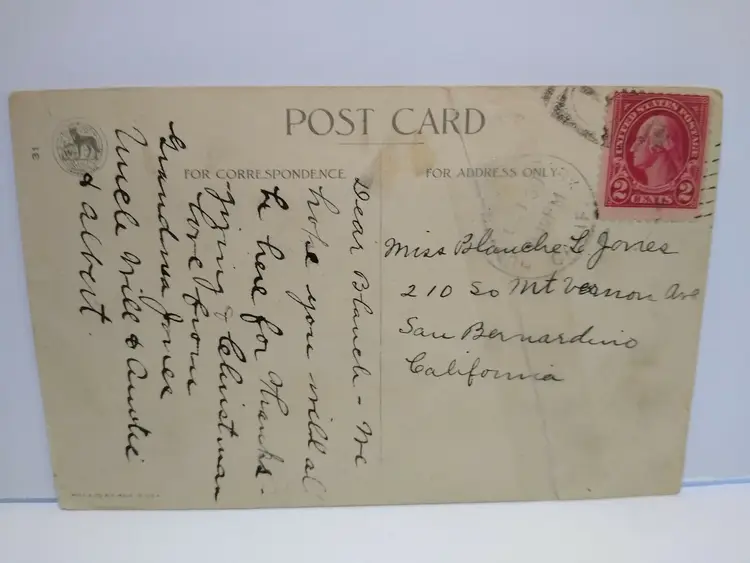 POST CARD
FOR CORRESPONDENCE
FOR ADDRESS ONLY
UNITED STATES POSTAGE
2 CENTS 2
CALIF
Dear Blanch - We
hope you will al
be here for thanks-
giving & Christman
love from
Grandma Jones
Uncle Will & Auntie
& albert.
Miss Blanche L Jones
210 So Mt Vernon Ave
San Bernardino
California
31